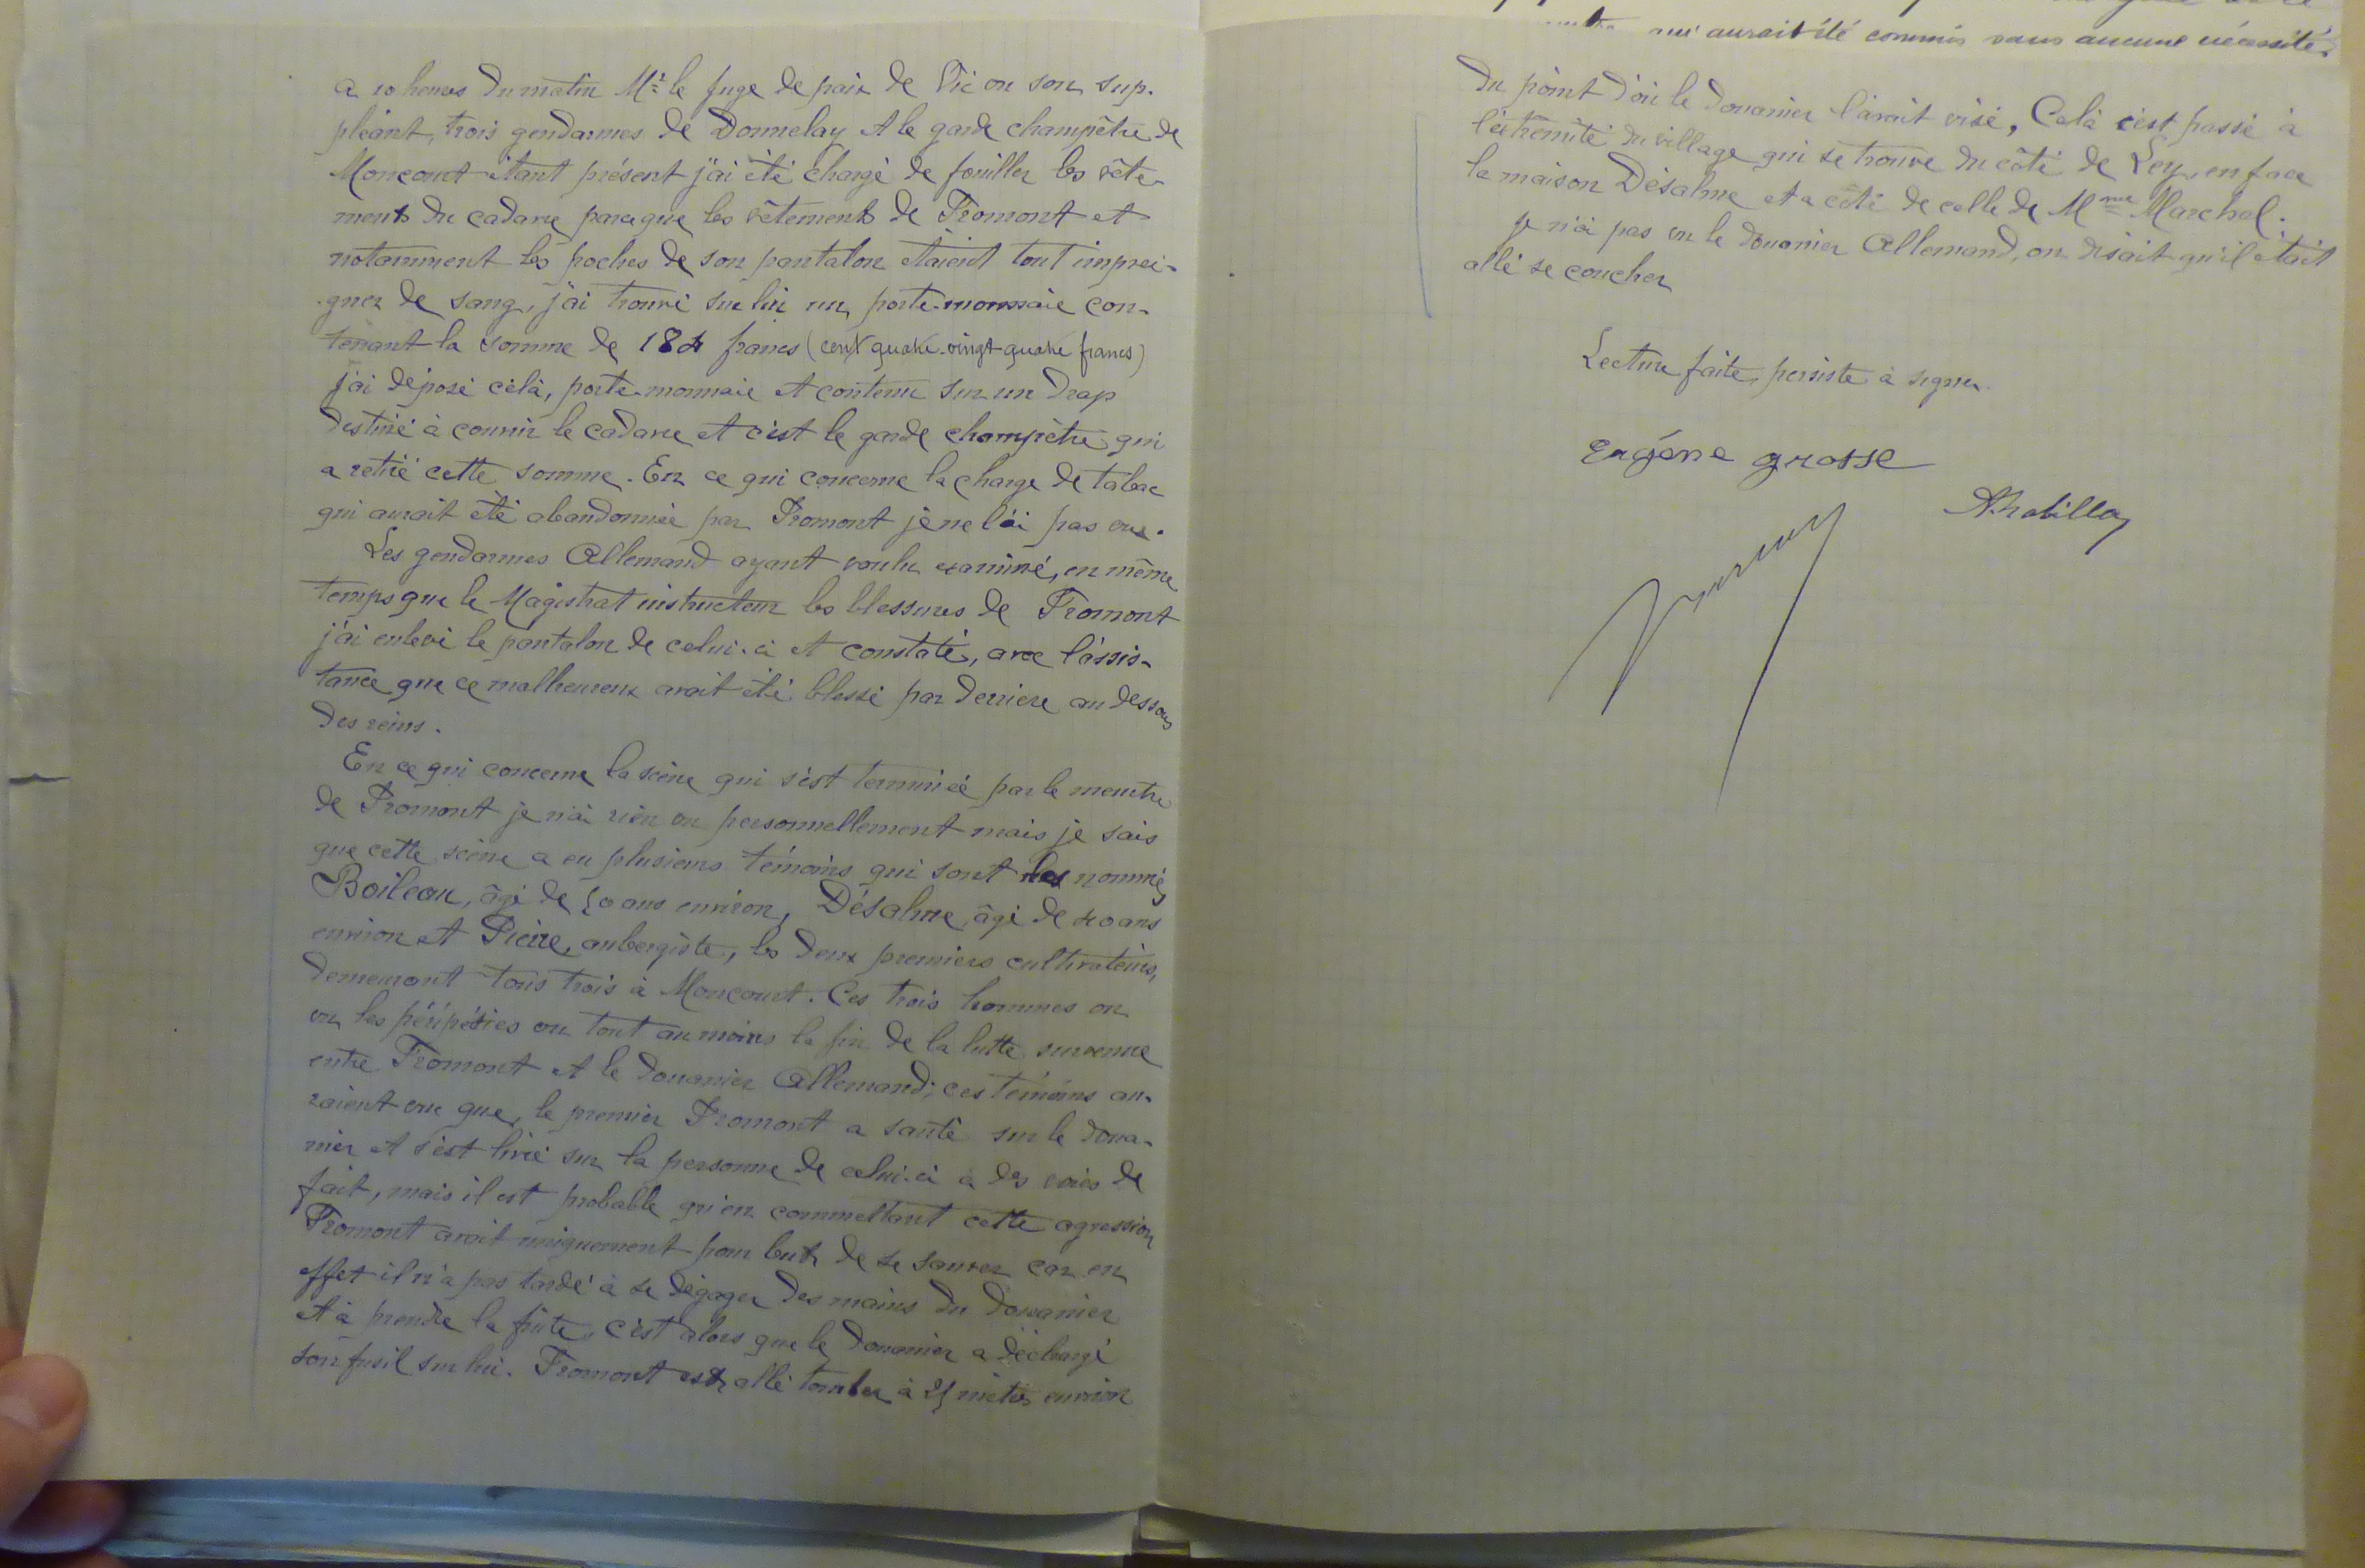 a 10 heures du matin Mr le juge de paix de Vic ou son sup-
pléant, trois gendarmes de Donnelay et le garde champêtre de
Moncourt étant présent j'ai été chargé de fouiller les vête-
ments du cadavre parceque les vêtements de Fromont et
notamment les poches de son pantalon étaient tout imprei-
gner de sang, j'ai trouvé sur lui un porte-monnaie con-
tenant la somme de 184 francs (cent quatre-vingt-quatre francs)
j'ai déposé célà, porte-monnaie et contenu sur un drap
destiné à couvrir le cadavre et c'est le garde champêtre qui
a retiré cette somme. En ce qui concerne la charge de tabac
qui aurait été abandonnée par Fromont je ne l'ai pas vue.
Les gendarmes Allemand ayant voulu examiné, en même
temps que le Magistrat instructeur les blessures de Fromont
j'ai enlevé le pantalon de celui-ci et constaté, avec l'assis-
tance que ce malheureux avait été blessé par derriere au dessous
des reins.
En ce qui concerne la scène qui s'est terminée par le meurtre
de Fromont je n'ai rien vu personnellement mais je sais
que cette scène a eu plusieurs témoins qui sont les nommés
Boileau, âgé de 50 ans environ, Désalme, âgé de 40 ans
environ et Pierre, aubergiste, les deux premiers cultivateurs,
demeurant tous trois à Moncourt. Ces trois hommes on
vu les péripéties ou tout au moins la fin de la lutte survenue
entre Fromont et le douanier Allemand; ces témoins au-
raient vu que, le premier Fromont a sauté sur le doua-
nier et s'est livré sur la personne de celui-ci à des voies de
fait, mais il est probable qu'en commettant cette agression
Fromont avait uniquement pour but de se sauver car en
effet il n'a pas tardé à se dégager des mains du douanier
et à prendre la fuite, c'est alors que le douanier a déchargé
son fusil sur lui. Fromont est allé tomber à 25 mètres environ
qui aurait été commis sans aucune nécessité.
du point d'où le douanier l'avait visé, Celà c'est passé à
l'extrémité du village qui se trouve du côté de Ley, en face
la maison Désalme et a côté de celle de Mme Marchal.
je n'ai pas vu le douanier Allemand, on disait qu'il était
allé se coucher
Lecture faite, persiste à signer.
Eugène grosse